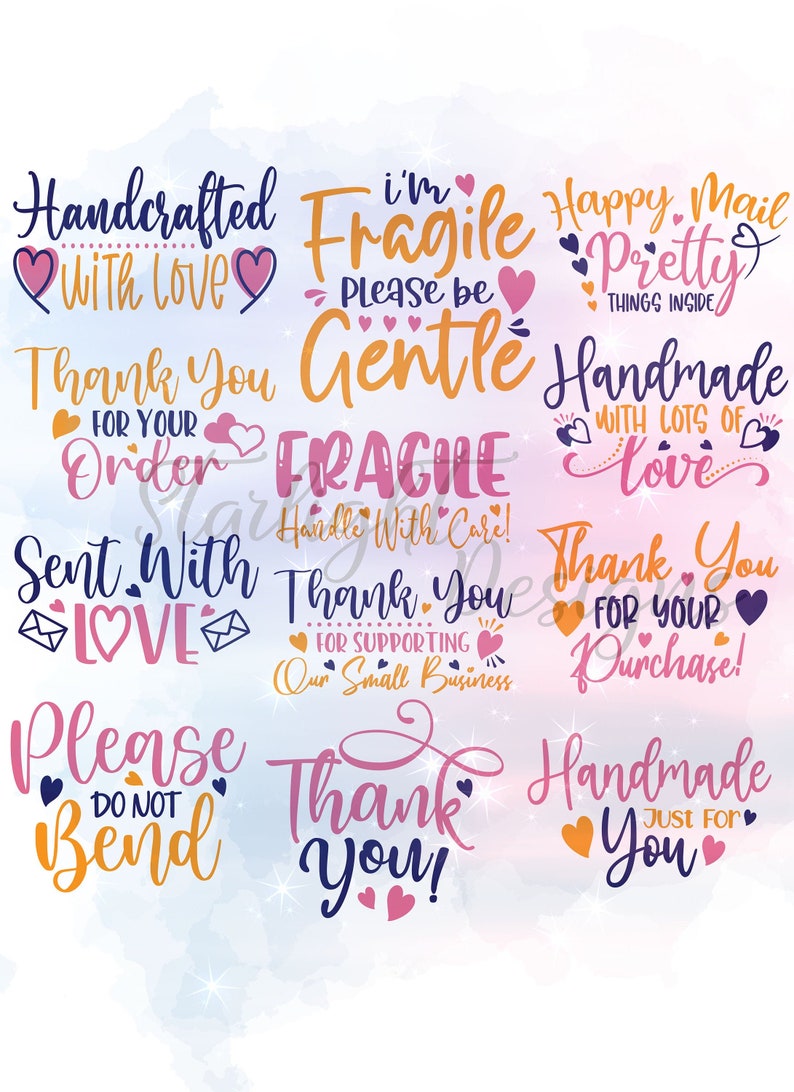 Handcrafted
with love
i'm
Fragile
Please be
Gentle
Happy Mail
Pretty
Things Inside
Thank You
For Your
Order
FRAGILE
Handle With Care!
Handmade
With Lots Of
Love
Sent With
LOVE
Thank You
For Supporting
Our Small Business
Thank You
For Your
Purchase!
Please
Do Not
Bend
Thank
You!
Handmade
Just For
You
Starlight
Designs